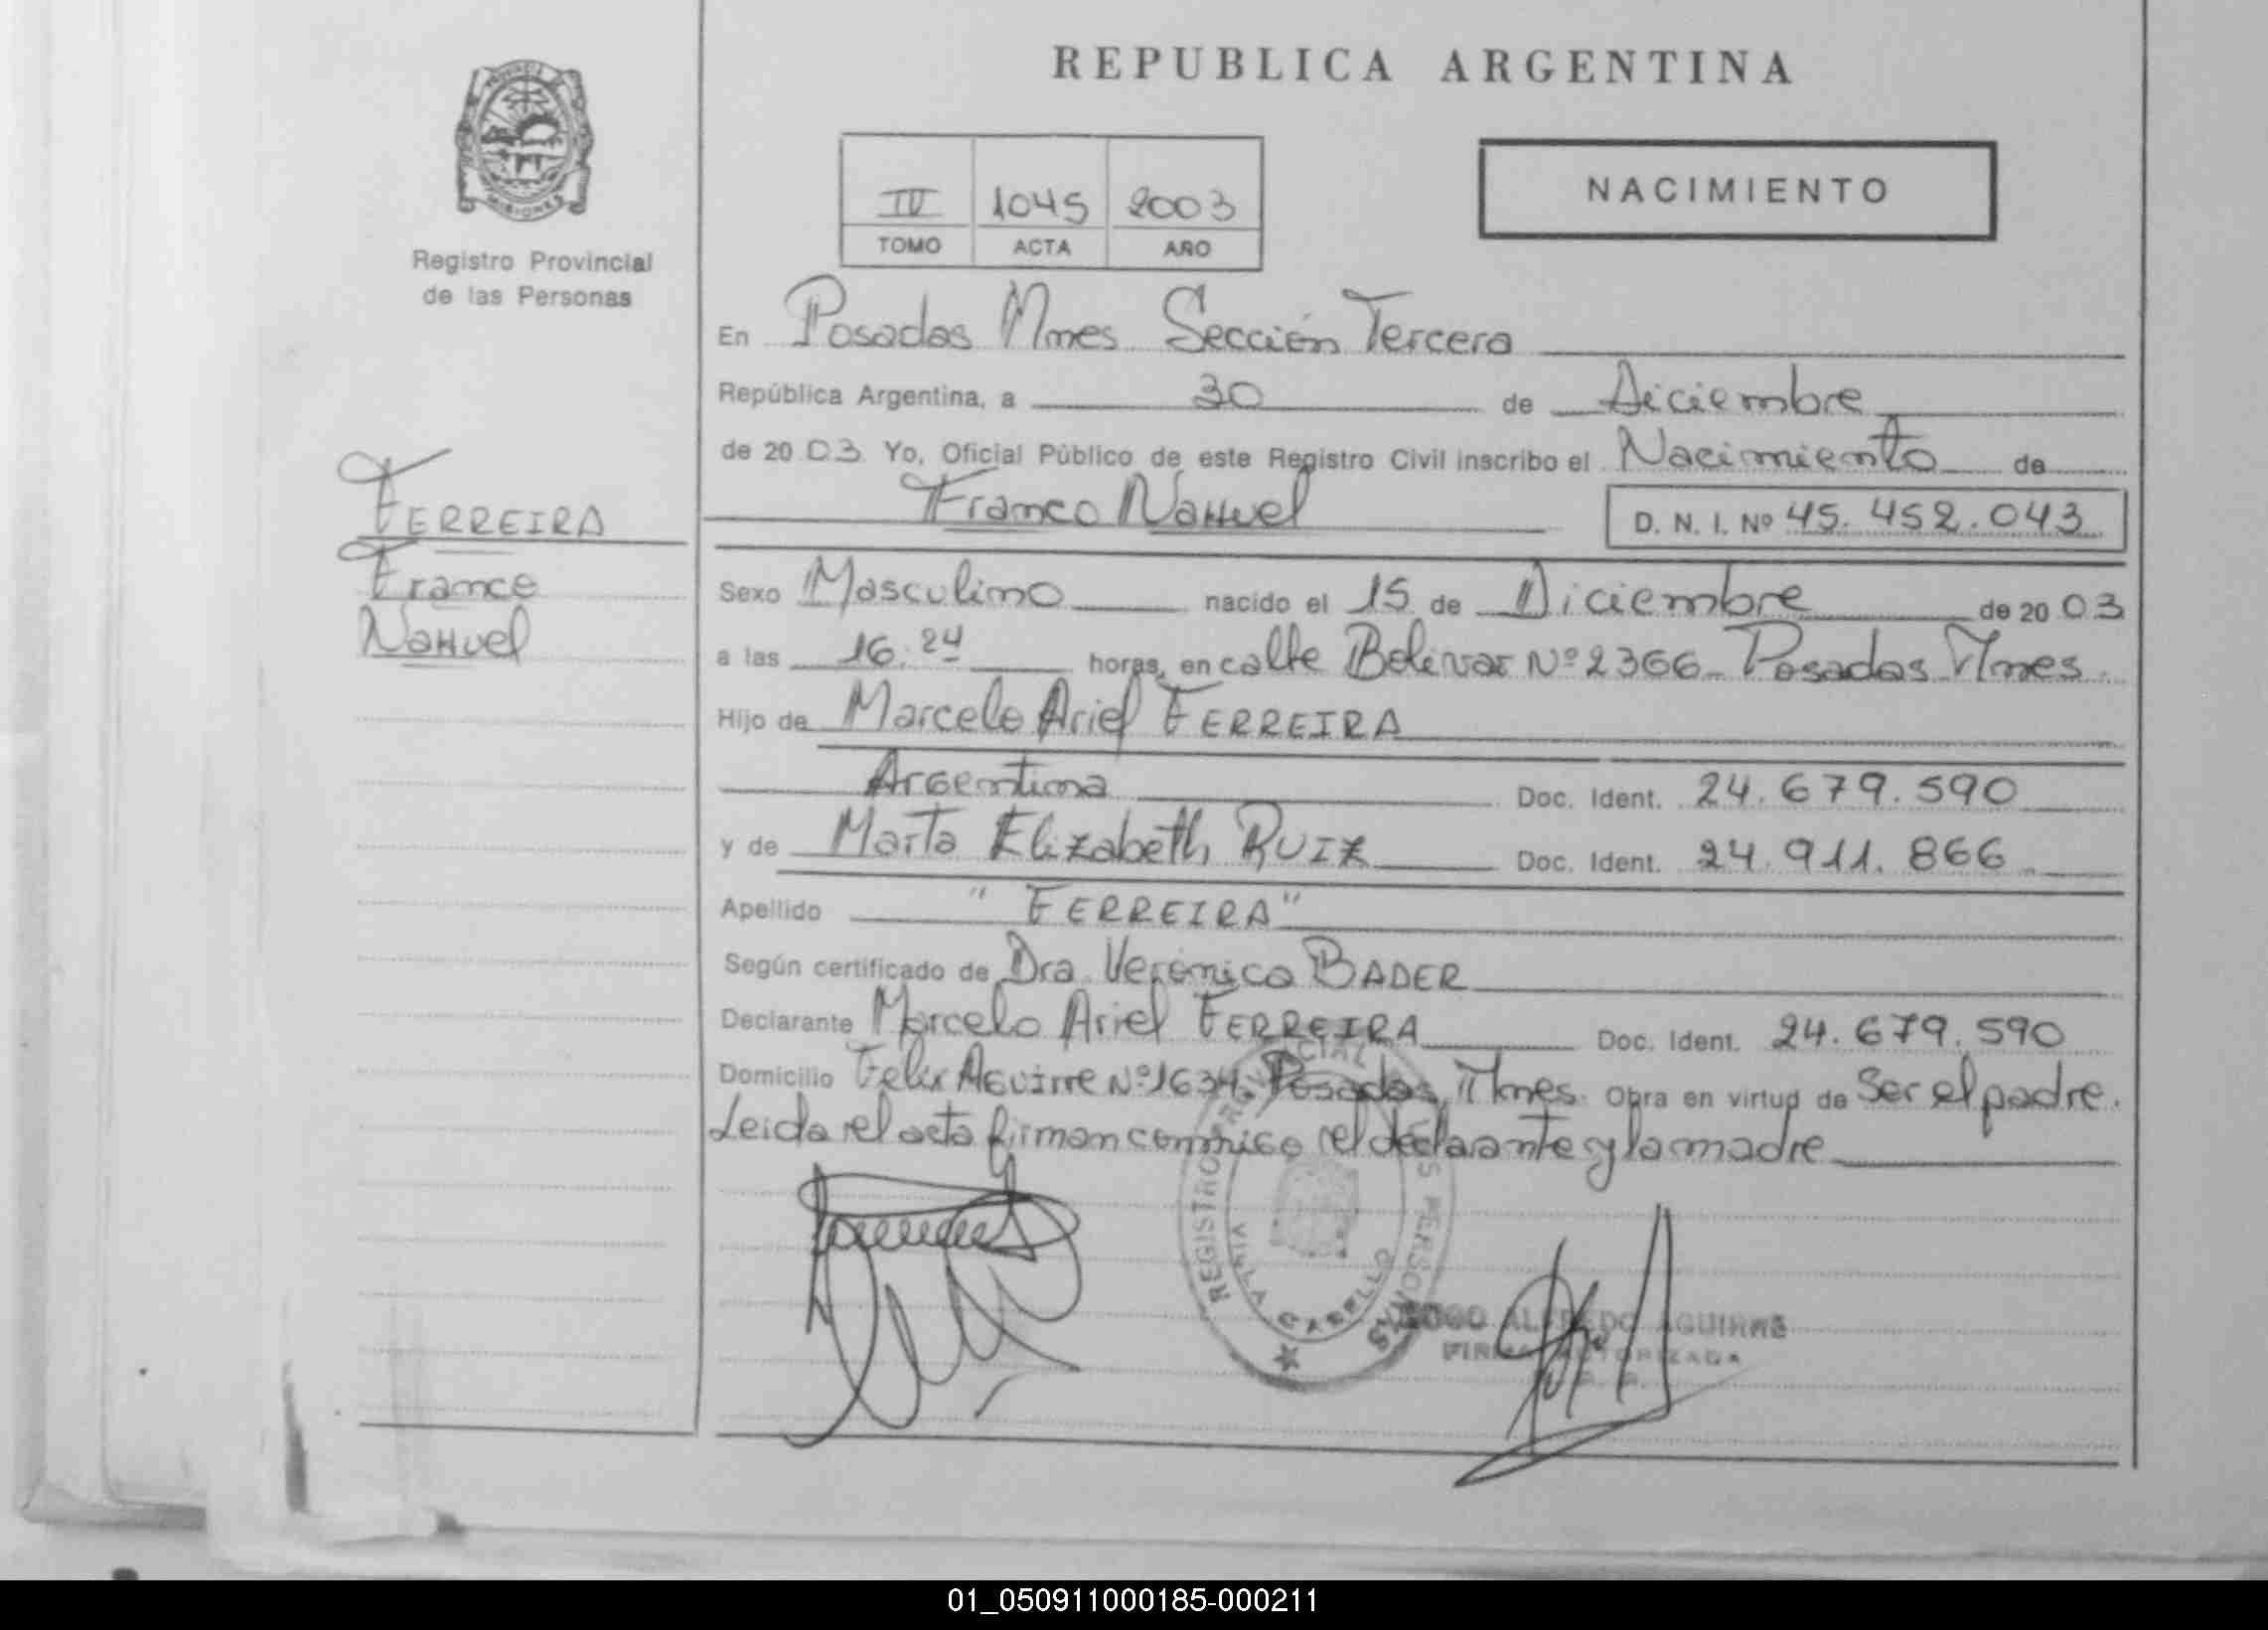 PROVINCIA DE
MISIONES
Registro Provincial
de las Personas
FERREIRA
Franco
Nahuel
REPUBLICA ARGENTINA
NACIMIENTO
IV 1045 2003
TOMO ACTA AÑO
En Posadas Mnes Sección Tercera
República Argentina, a 30 de Diciembre
de 2003 Yo, Oficial Público de este Registro Civil inscribo el Nacimiento de
Franco Nahuel D. N. I. Nº 45.452.043
Sexo Masculino nacido el 15 de Diciembre de 2003
a las 16.24 horas, en calle Bolivar Nº 2366 Posadas Mnes.
Hijo de Marcelo Ariel FERREIRA
Argentina Doc. Ident. 24.679.590
y de Marta Elizabeth RUIZ Doc. Ident. 24.911.866
Apellido "FERREIRA"
Según certificado de Dra. Veronica BADER
Declarante Marcelo Ariel FERREIRA Doc. Ident. 24.679.590
Domicilio Felix Aguirre Nº 1634 Posadas, Mnes. Obra en virtud de Ser el padre.
Leida el acta firman conmigo el declarante y la madre
REGISTRO PROVINCIAL DE LAS PERSONAS
VILLA CABELLO
ALFREDO AGUIRRE
FIRMA AUTORIZADA
01_050911000185-000211